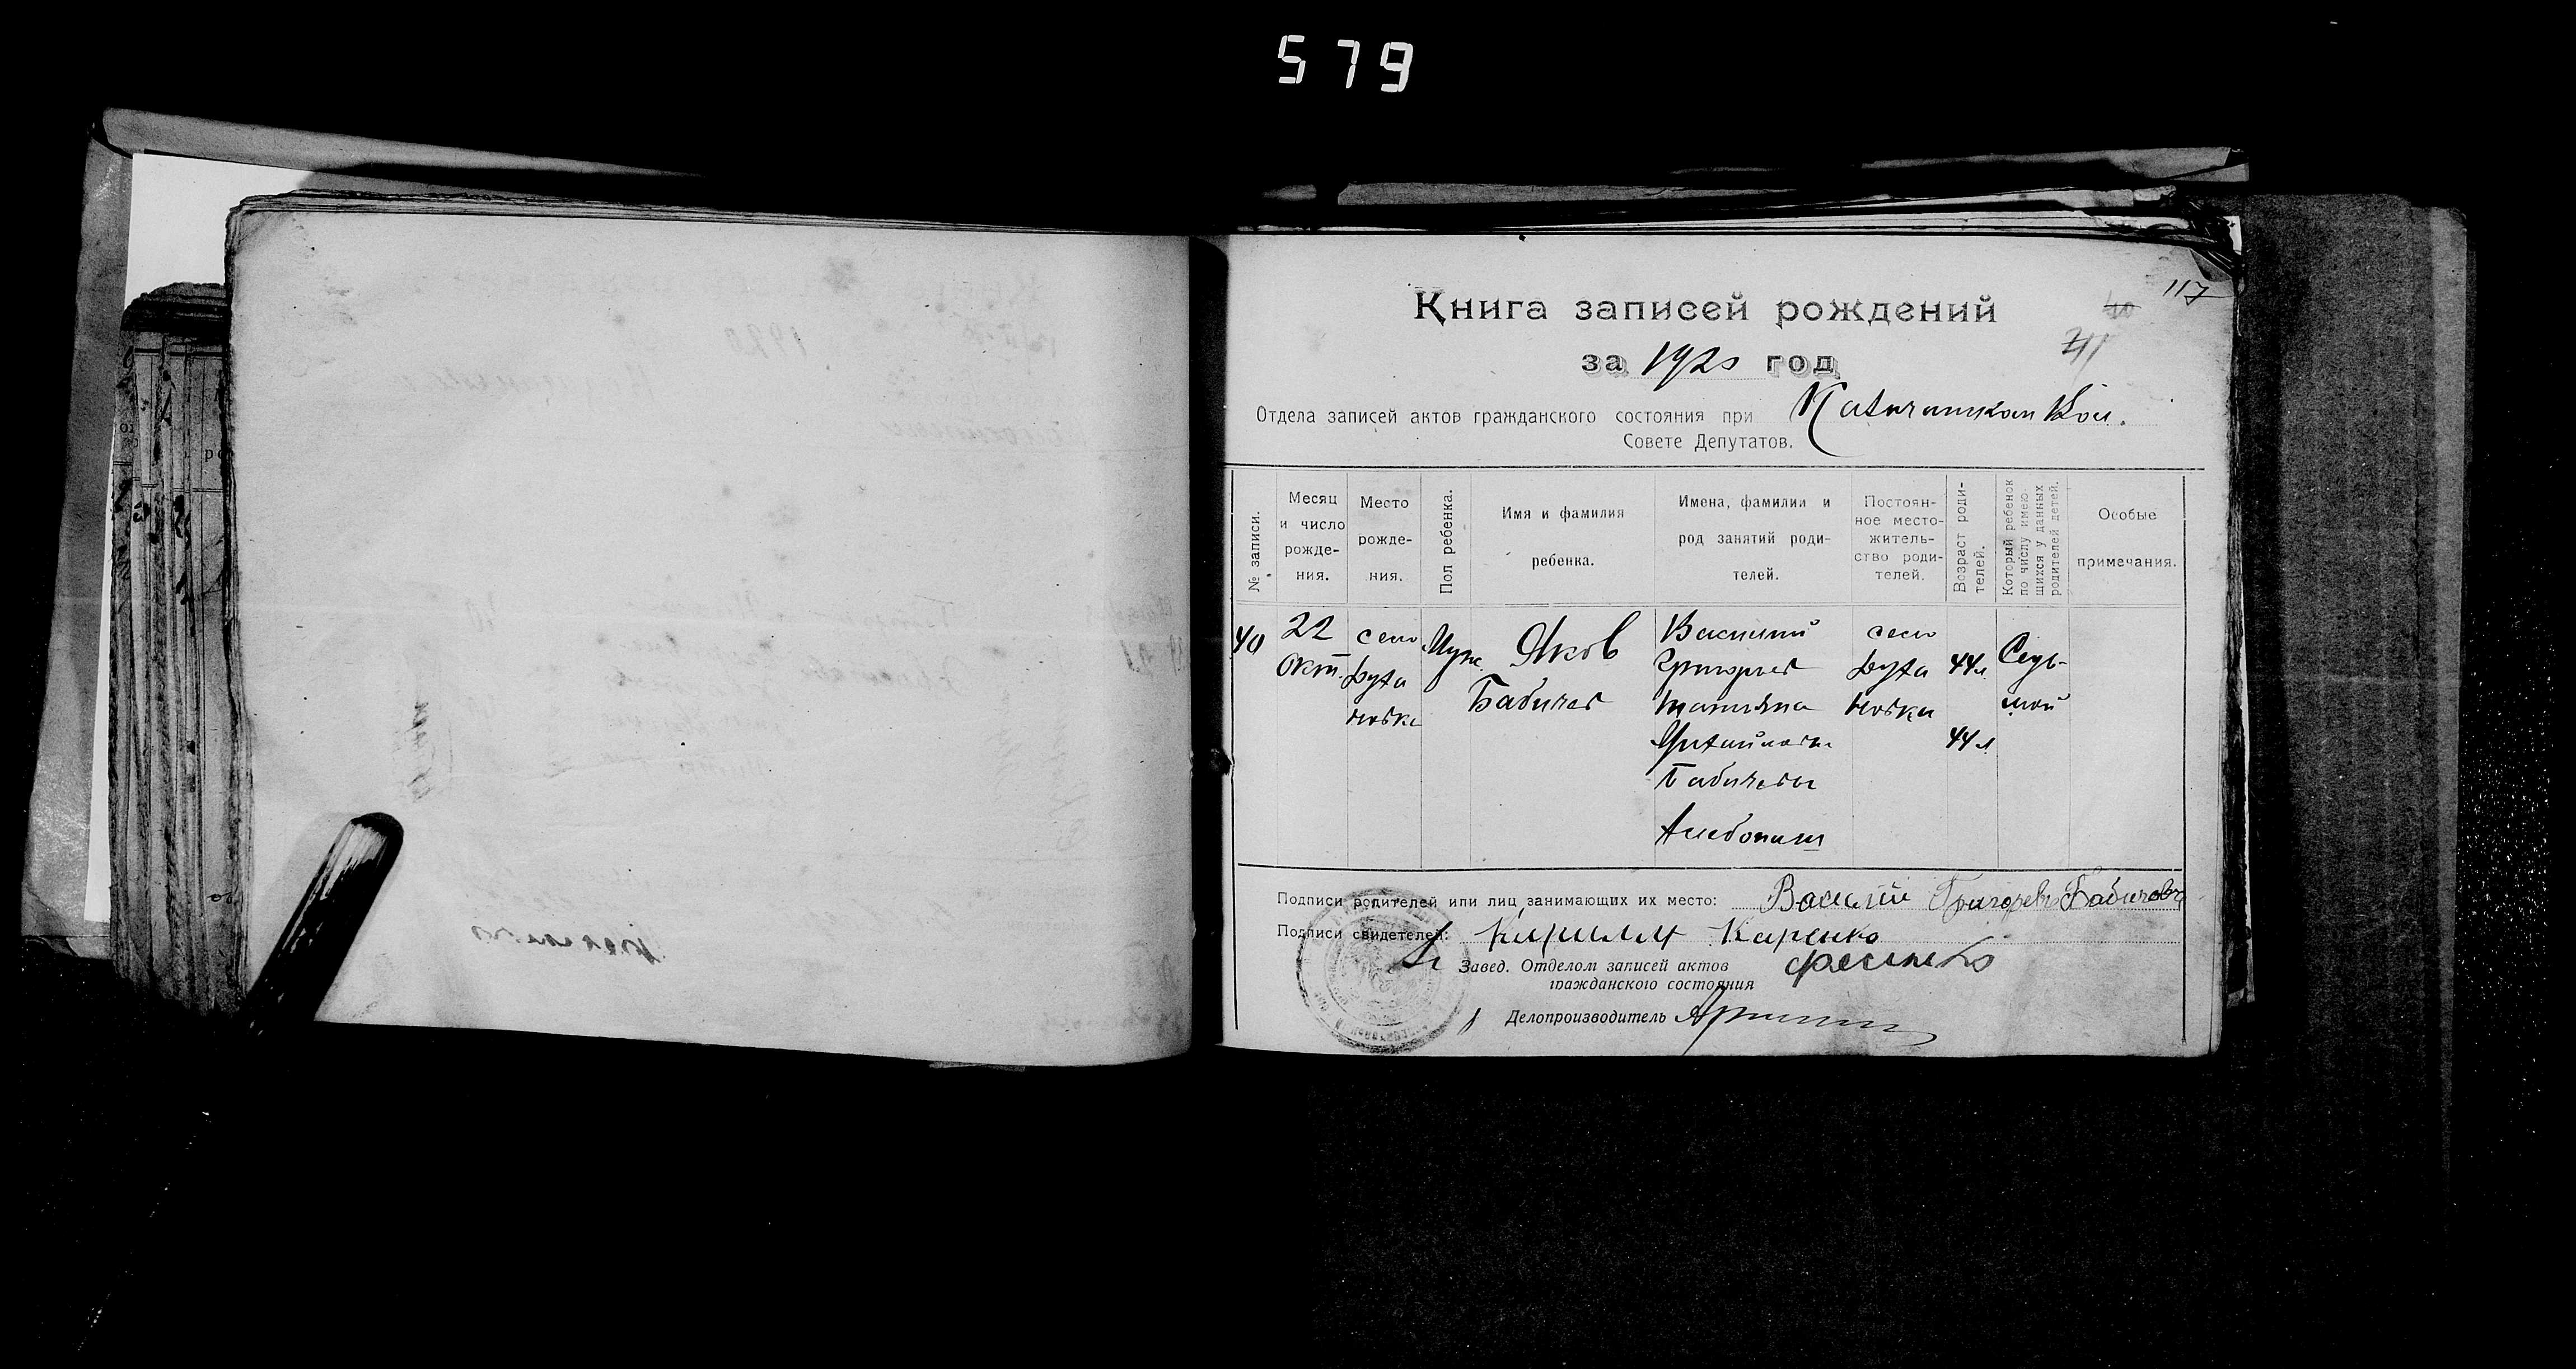 579
117
40
41
Книга записей рождений
за 1920 год
Отдела записей актов гражданского состояния при
Совете Депутатов.
№ записи.
Месяц
и число
рожде-
ния.
Место
рожде-
ния.
Пол ребенка.
Имя и фамилия
ребенка.
Имена, фамилии и
род занятий роди-
телей.
Постоян-
ное место-
житель-
ство роди-
телей.
Возраст роди-
телей.
Который ребенок
по числу имею-
щихся у данных
родителей детей.
Особые
примечания.
40
22
окт.
село
Муж.
Яков
Бабичев
Василий
Григорьев
Татьяна
Бабичевы
Хлебопаш
село
44 л.
44 л
Седь-
мой
Подписи родителей или лиц, занимающих их место: Василий Григорьев Бабичевъ
Подписи свидетелей: Кирилл Каренко
Завед. Отделом записей актов
гражданского состояния
Делопроизводитель